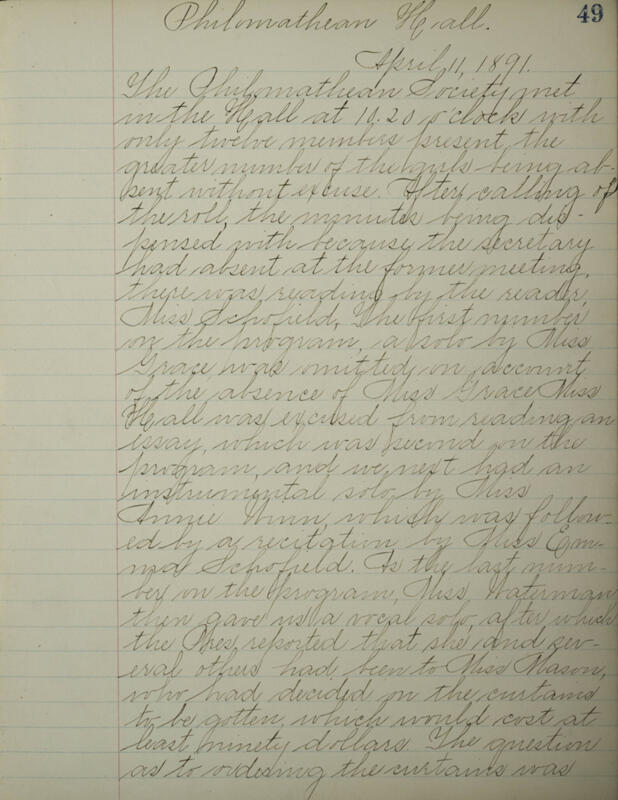 49
Philomathean Hall.
April, 11, 1891.
The Philomathean Society met
in the Hall at 10.20 o'clock with
only twelve members present, the
greater number of the girls being ab-
sent without excuse. After calling of
the roll, the minutes being dis-
pensed with because the secretary
had absent at the former meeting,
there was reading by the reader,
Miss Schofield. The first number
on the program, a solo by Miss
Grace, was omitted on account
of the absence of Miss Grace. Miss
Hall was excused from reading an
essay, which was second on the
program, and we next had an
instrumental solo by Miss
Annie Winn, which was follow-
ed by a recitation by Miss Em-
ma Schofield. As the last num-
ber on the program, Miss Waterman
then gave us a vocal solo, after which
the Pres. reported that she and sev-
eral others had been to Miss Mason,
who had decided on the curtains
to be gotten, which would cost at
least ninety dollars. The question
as to ordering the curtains was